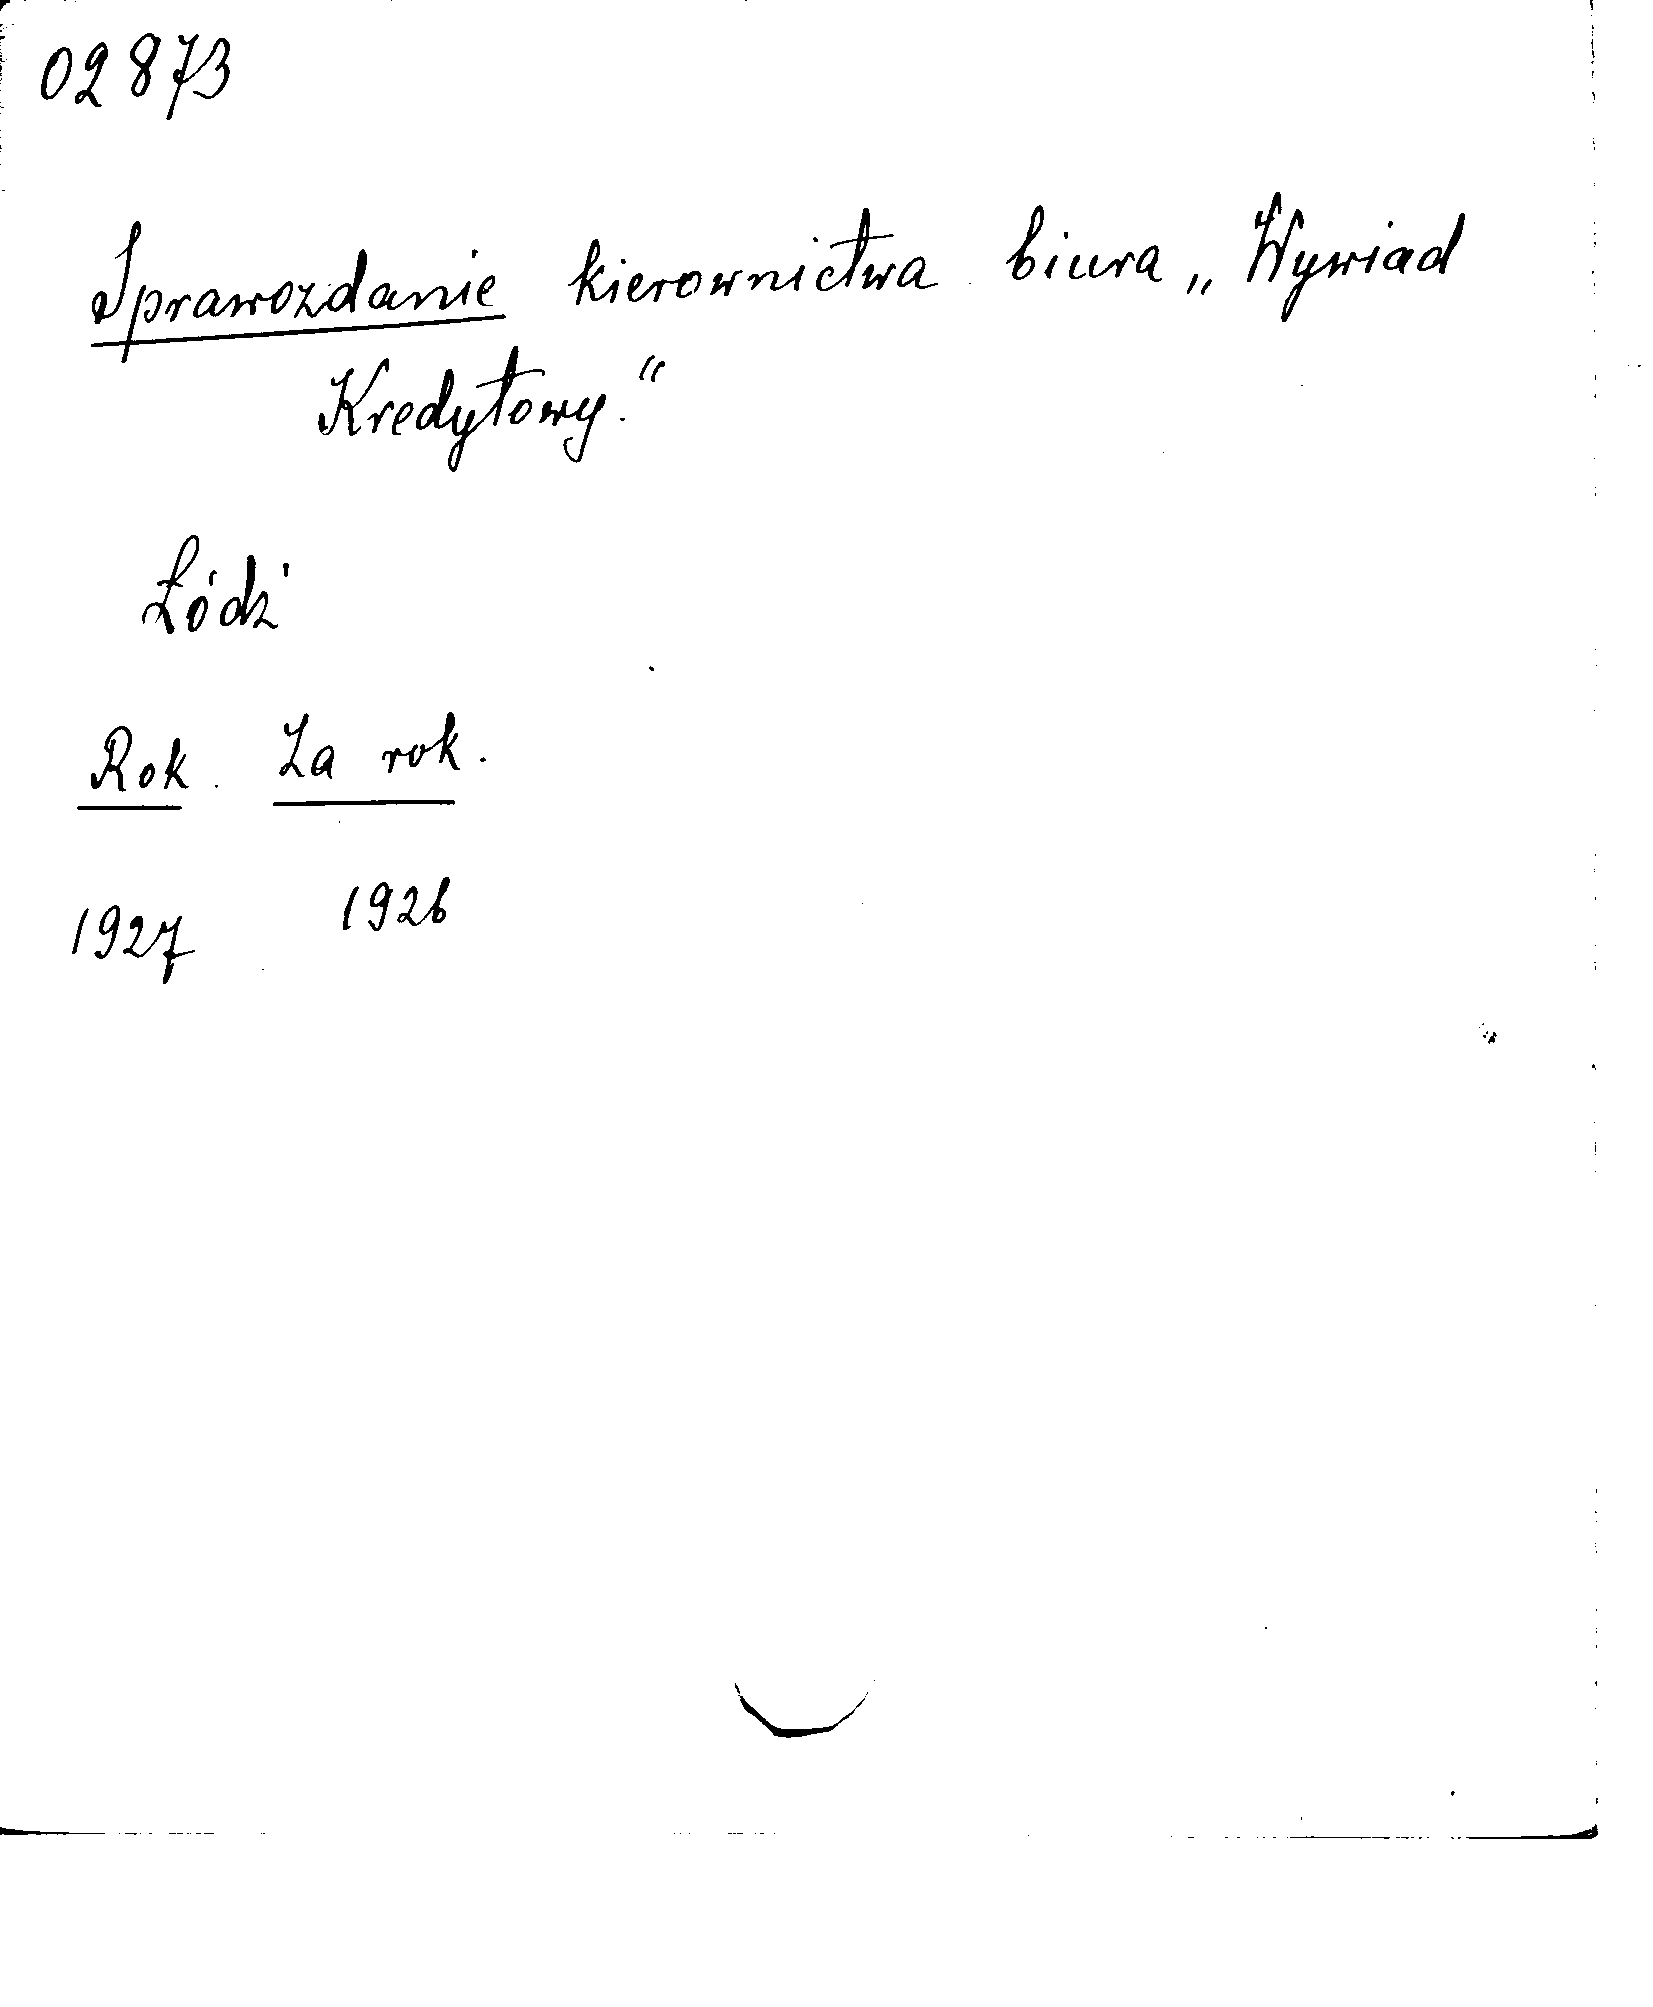 02873
Sprawozdanie kierownictwa biura „Wywiad
Kredytowy.“
Łódź
Rok. Za rok.
1927 1926